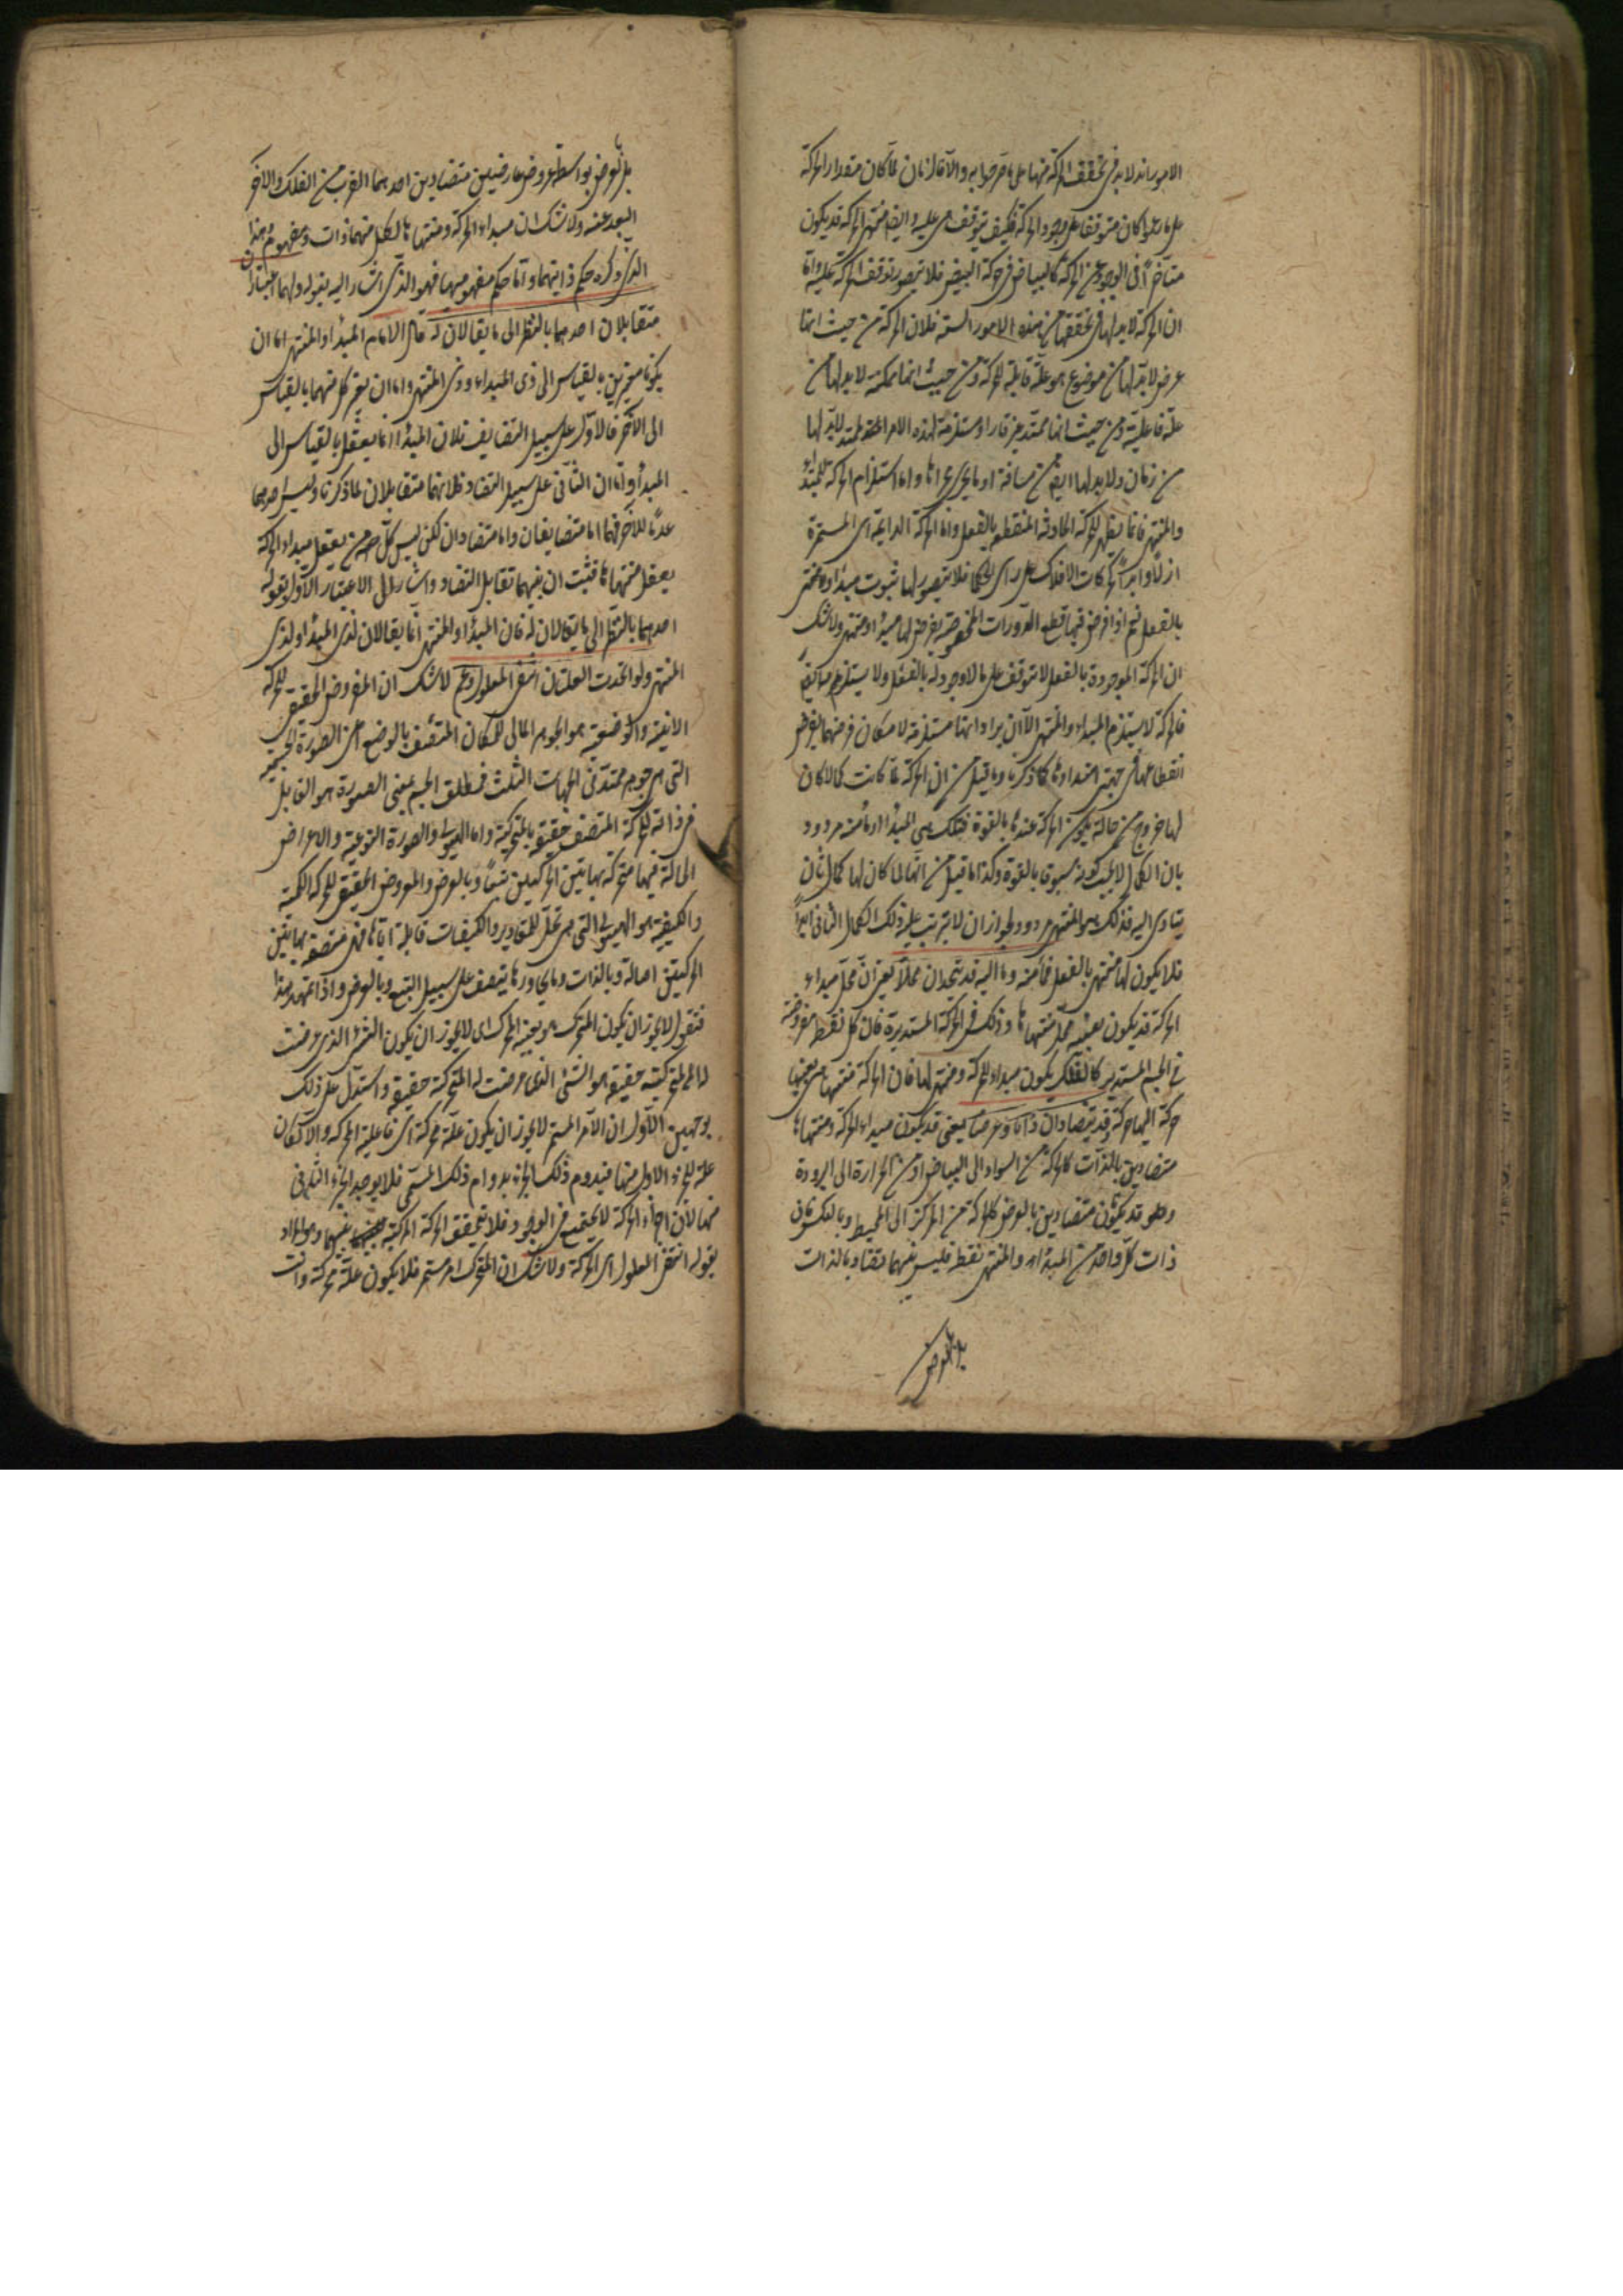 الامور انه لابد فى تحقق الحركة منها على ما مر جوابه والا فالزمان لما كان مقدار الحركة
على ما زعموا كان متوقفا على وجود الحركة فكيف يتوقف هى عليه وايضا منتهى الحركة قد يكون
متأخرا فى الوجود عن الحركة كالبياض فى حركة التبيض فلا يتصور توقف الحركة عليه واما
ان الحركة لابد لها فى تحققها من هذه الامور الستة فلان الحركة من حيث انها
عرض لابد لها من موضوع هو علة قابلية للحركة ومن حيث انها ممكنة لابد لها من
علة فاعلية ومن حيث انها ممتد غير قار او مستلزمة لهذه الامر الممتد لابد لها
من زمان ولابد لها ايضا من مسافة او ما يجرى مجراها واما استلزام الحركة للمبتدأ
والمنتهى فانما يظهر للحركة الحادثة المنقطعة بالفعل واما الحركة الدائمة اى المستمرة
ازلا وابدا كحركات الافلاك على رأى الحكماء فلا يتصور لها ثبوت مبدأ ومنتهى
بالفعل نعم اذا فرض فيها قطعة الدورات المخصوصة يفرض لها مبدأ ومنتهى ولا شك
ان الحركة الموجودة بالفعل لا يتوقف على ما لا وجود له بالفعل ولا يستلزمه ايضا
فالحركة لا يستلزم المبدأ والمنتهى الا ان يراد انها مستلزمة لامكان فرضهما بفرض
انقطاعها فى جهتى امتدادها كما ذكرنا وما قيل من ان الحركة لما كانت كمالا كان
لها خروج من حالة يكون الحركة عندها بالقوة فتلك هى المبدأ او ما منه مردود
بان الكمال لا يجب كونه مسبوقا بالقوة وكذا ما قيل من انها لما كان لها كمال ثان
يتادى اليه فذلك هو المنتهى مردود لجواز ان لا يترتب عليه ذلك الكمال الثانى ابدا
فلا يكون لها منتهى بالفعل فما منه وما اليه قد يتحدان محلا يعنى ان محل مبدأ
الحركة قد يكون بعينه محل منتهاها وذلك فى الحركة المستديرة فان كل نقطة مفروضة
فى الجسم المستدير كالفلك يكون مبدأ للحركة ومنتهى لها فان الحركة منتهى من بعينها
حركة اليها وقد يتضادان ذاتا وعرضا يعنى قد يكون مبدأ الحركة ومنتهاها
متضادين بالذات كالحركة من السواد الى البياض او من الحرارة الى البرودة
وقد يكون متضادين بالعرض كالحركة من المركز الى المحيط وبالعكس فان
ذات كل واحد من المبدأ والمنتهى نقطة فليس بينهما تضاد بالذات
بل بالعرض
بل بالعرض بواسطة عروض عارضين متضادين احدهما القرب من الفلك والاخر
البعد عنه ولا شك ان مبدأ الحركة ومنتهاها لكل منهما ذات ومفهوم هذا
الذى ذكره حكم ذاتيهما واما حكم مفهوميهما فهو الذى اشار اليه بقوله ولهما اعتباران
متقابلان احدهما بالنظر الى ما يقالان له قال الامام المبدأ والمنتهى اما ان
يكونا معتبرين بالقياس الى ذى المبدأ وذى المنتهى واما ان يعتبر كل منهما بالقياس
الى الاخر فالاول على سبيل التضايف فلان المبدأ انما يعقل بالقياس الى
المبدأ واما ان الثانى على سبيل التضاد فلانهما متقابلان لما ذكرنا وليس احدهما
عدما للاخر فهما اما متضايفان واما متضادان لكن ليس كل من يعقل مبدأ الحركة
يعقل منتهاها فثبت ان بينهما تقابل التضاد واشار الى الاعتبار الاول بقوله
احدهما بالنظر الى ما يقالان له فان المبدأ والمنتهى انما يقالان لذى المبدأ ولذى
المنتهى ولو اتحدت العلتان انتفى المعلول وعم لا شك ان المفروض الحقيقى للحركة
الاينية والوضعية هو الجوهر المالى للمكان المتصف بالوضع اعنى الصورة الجسمية
التى هى جوهر ممتد فى الجهات الثلث فمطلق الجسم بمعنى الصورة هو القابل
فى ذاته للحركة المتصف حقيقة بالمتحركية واما الهيولى والصورة النوعية والاعراض
الحالة فيها متحركة بهاتين الحركتين تبعا وبالعرض والمعروض الحقيقى للحركة الكمية
والكيفية هو الهيولى التى هى محل للمقادير والكيفيات قابلة اياها فهى متصفة بهاتين
الحركتين اصالة وبالذات وما يجاورها يتصف على سبيل التبع وبالعرض واذا تمهد هذا
فنقول لا يجوز ان يكون المتحرك هو بعينه المحرك اى لا يجوز ان يكون الشىء الذى عرضت
له المحركية حقيقة هو الشىء الذى عرضت له المتحركية حقيقة واستدل على ذلك
بوجهين الاول ان الامر المستمر لا يجوز ان يكون علة محركة اى فاعلية الحركة والا لكان
علة للجزء الاول منها فيدوم ذلك الجزء بدوام ذلك المستمر فلا يوجد الجزء الثانى
منها لان اجزاء الحركة لا يجتمع فى الوجود فلا تتحقق الحركة المركبة بينهما وهو المراد
بقوله انتفى المعلول اى الحركة ولا شك ان المتحرك امر مستمر فلا يكون علة محركة وانت